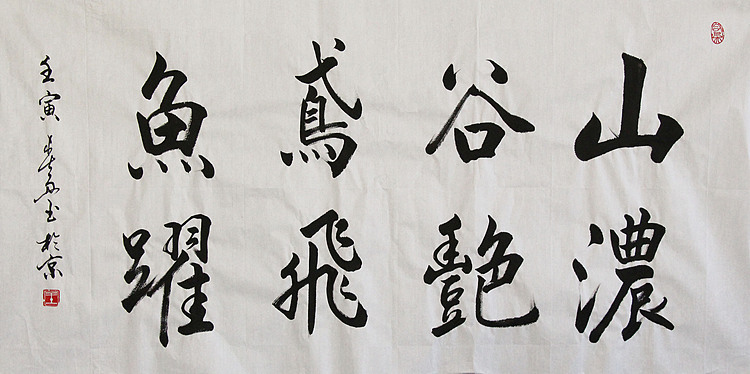 山濃
谷艷
鳶飛
魚躍
壬寅 書於京